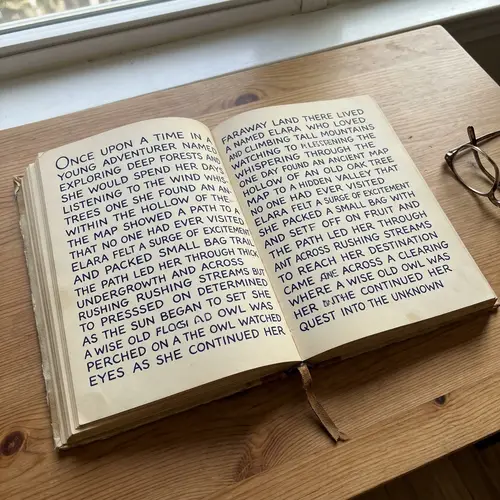 ONCE UPON A TIME IN A
YOUNG ADVENTURER NAMED
EXPLORING DEEP FORESTS AND
SHE WOULD SPEND HER DAYS
LISTENING TO THE WIND WHI
TREES ONE SHE FOUND AN AN
WITHIN THE HOLLOW OF THE
THE MAP SHOWED A PATH TO A
THAT NO ONE HAD EVER VISITED
ELARA FELT A SURGE OF EXCITEMENT
AND PACKED SMALL BAG TRAIL
THE PATH LED HER THROUGH THICK
UNDERGROWTH AND ACROSS
RUSHING RUSHING STREAMS BUT
TO PRESSSED ON DETERMINED
AS THE SUN BEGAN TO SET SHE
A WISE OLD OWL WAS
PERCHED ON A THE OWL WATCHED
EYES AS SHE CONTINUED HER
FARAWAY LAND THERE LIVED
A NAMED ELARA WHO LOVED
AND CLIMBING TALL MOUNTAINS
WATCHING TO THE
WHISPERING THROUGH THE
ONE DAY FOUND AN ANCIENT MAP
HOLLOW OF AN OLD OAK TREE
MAP TO A HIDDEN VALLEY THAT
NO ONE HAD EVER VISITED
ELARA FELT A SURGE OF EXCITEMENT
SHE PACKED A SMALL BAG WITH
AND SET OFF ON FRUIT AND
THE PATH LED HER THROUGH
ANT ACROSS RUSHING STREAMS
TO REACH HER DESTINATION
CAME ACROSS A CLEARING
WHERE A WISE OLD OWL WAS
HER THE CONTINUED HER
QUEST INTO THE UNKNOWN